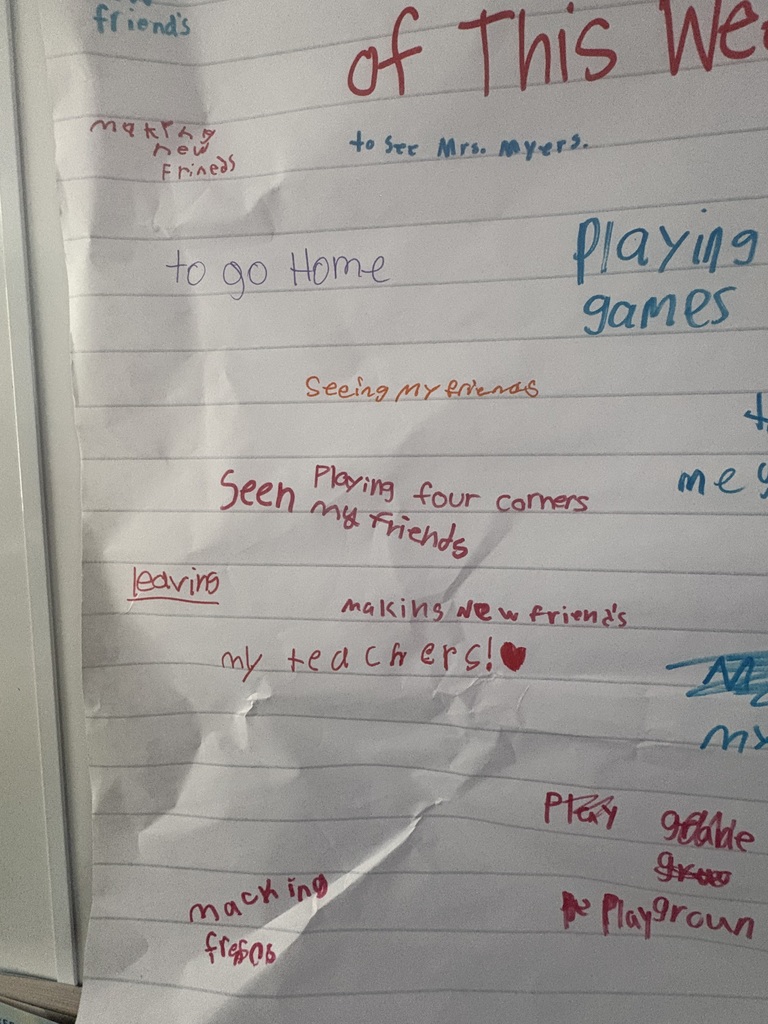 friend's
of This We
making
new
Frineds
to see Mrs. Myers.
to go Home
Playing
games
Seeing My friends
me
Seen Playing four corners
my friends
leaving
making new friend's
my teachers!❤
my
Play
macking
Playgroun